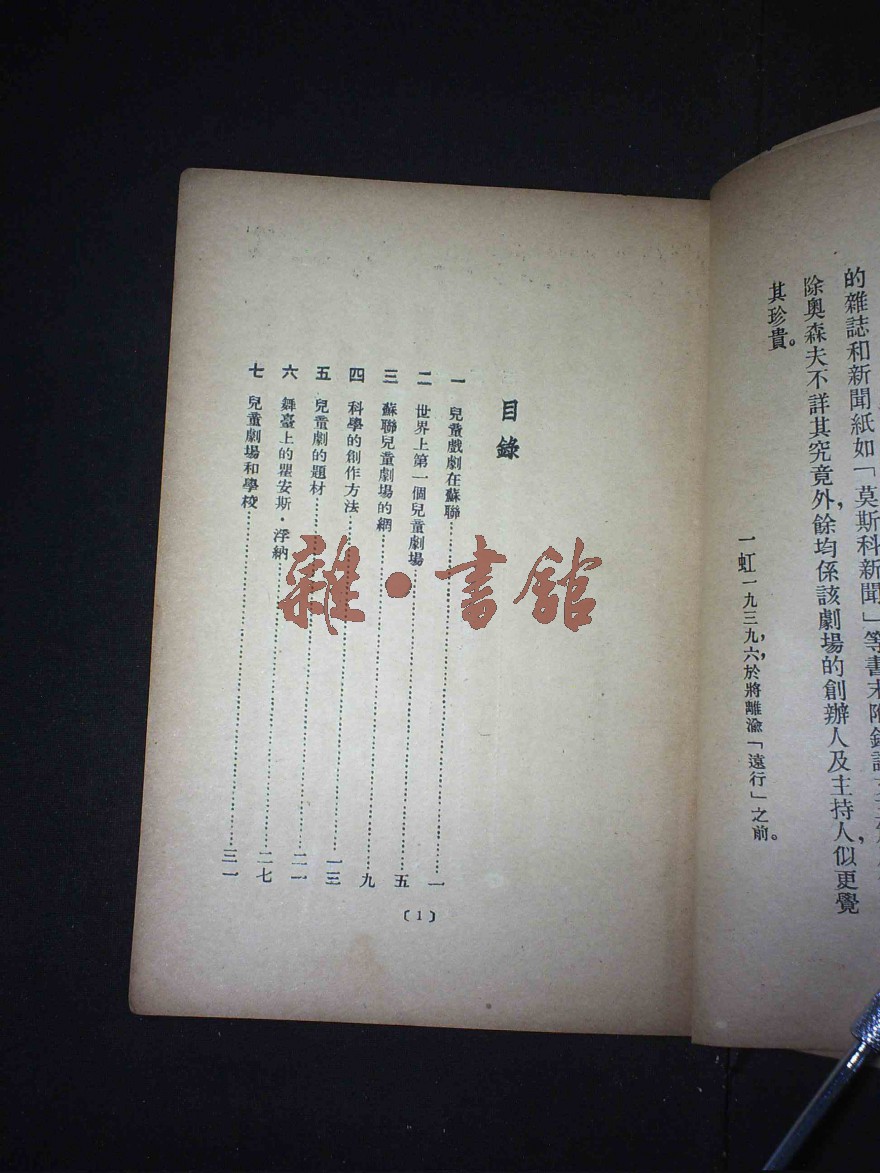 的雜誌和新聞紙如「莫斯科新聞」等書末附錄
除奧森夫不詳其究竟外，餘均係該劇場的創辦人及主持人，似更覺
其珍貴。
一虹一九三九，六，於將離渝「遠行」之前。
目錄
一 兒童戲劇在蘇聯……一
二 世界上第一個兒童劇場……五
三 蘇聯兒童劇場的網……九
四 科學的創作方法……一三
五 兒童劇的題材……二一
六 舞臺上的瞿安斯·浮納……二七
七 兒童劇場和學校……三一
(1)
雜·書館